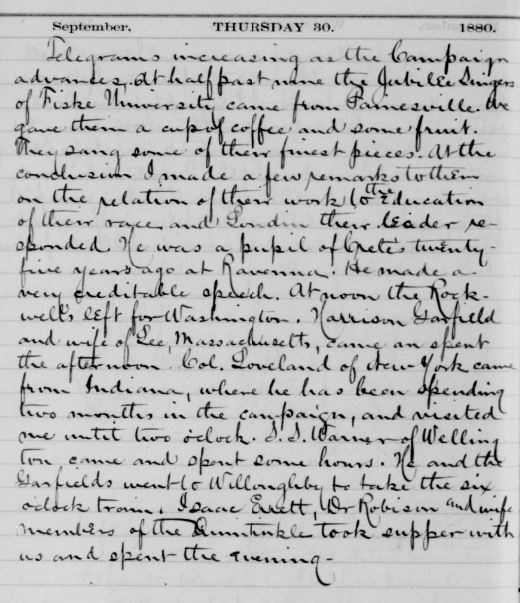 September. THURSDAY 30. 1880.
Telegrams increasing as the Campaign
advances. At half past nine the Jubilee Singers
of Fiske University came from Painesville. We
gave them a cup of coffee and some fruit.
They sang some of their finest pieces. At the
conclusion I made a few remarks to them
on the relation of their work to the Education
of their race, and Loudin their leader re-
sponded. He was a pupil of Crete's twenty-
five years ago at Ravenna. He made a
very creditable speech. At noon the Rock-
wells left for Washington. Harrison Garfield
and wife of Lee, Massachusetts, came an spent
the afternoon. Col. Loveland of New York came
from Indiana, where he has been spending
two months in the campaign, and visited
me until two o'clock. S. S. Warner of Welling
ton came and spent some hours. He and the
Garfields went to Willoughby to take the six
o'clock train. Isaac Errett, Dr Robison and wife
members of the took supper with
us and spent the evening-